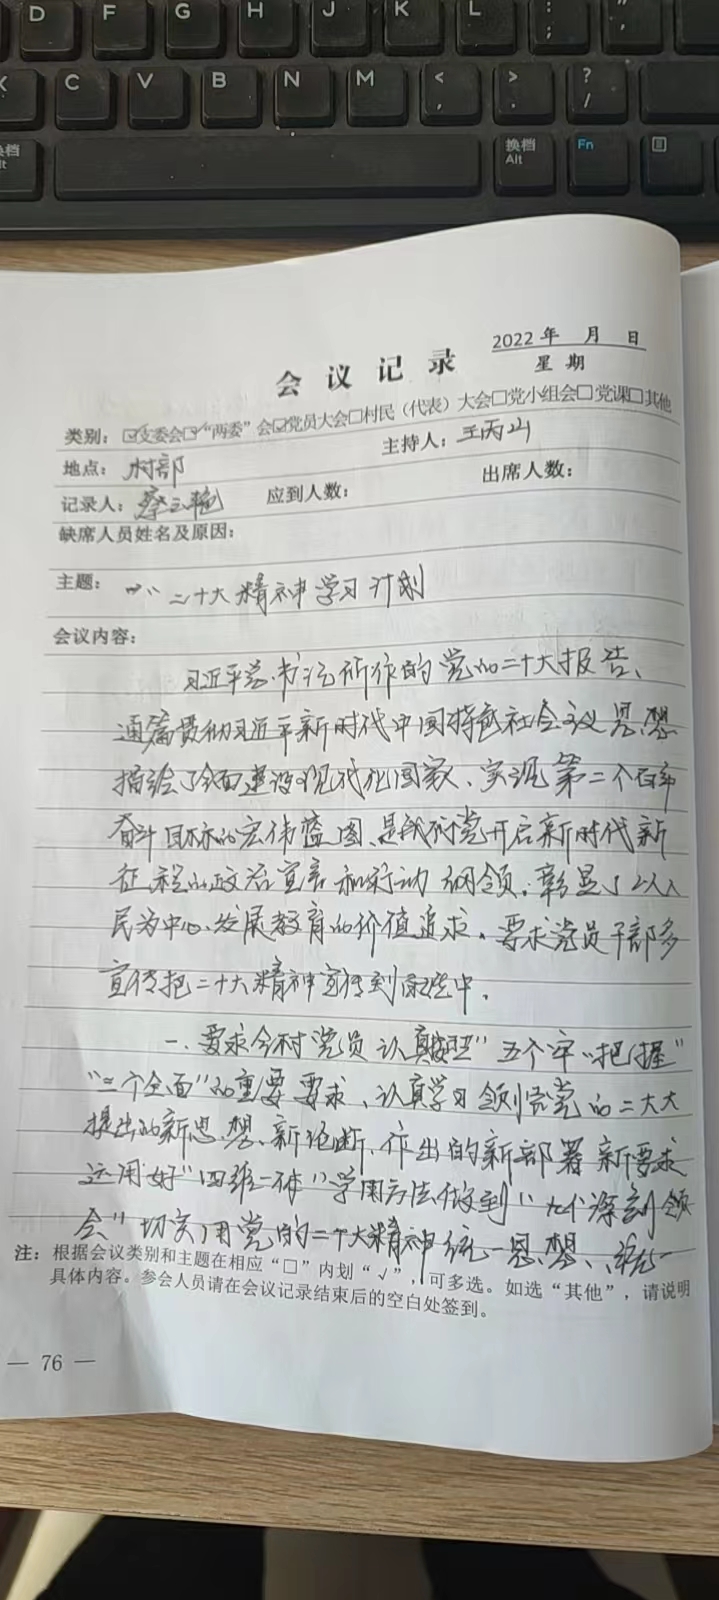 D F G H J K L : ;
X C V B N M < , > . ? /
换档 Alt Fn
会议记录
2022 年 月 日
星 期
类别：☑支委会☑“两委”会☑党员大会□村民（代表）大会□党小组会□党课□其他
地点：村部 主持人：王丙山
记录人：蔡云艳 应到人数： 出席人数：
缺席人员姓名及原因：
主题： 二十大精神学习计划
会议内容：
习近平总书记所作的党的二十大报告、
通篇贯彻习近平新时代中国特色社会主义思想
描绘了全面建设现代化国家、实现第二个百年
奋斗目标的宏伟蓝图、是我们党开启新时代新
征程的政治宣言和行动纲领，彰显了以人
民为中心发展教育的价值追求。要求党员干部多
宣传把二十大精神宣传到 中。
一、要求今村党员认真 “五个牢 把握”
“三个全面”的重要要求、认真学习领悟党的二大大
提出的新思想、新论断、作出的新部署新要求
运用好“四维一体”学用方法做到“九个深刻领
会”切实用党的二十大精神统一思想、统一
注：根据会议类别和主题在相应“□”内划“√”，可多选。如选“其他”，请说明
具体内容。参会人员请在会议记录结束后的空白处签到。
— 76 —